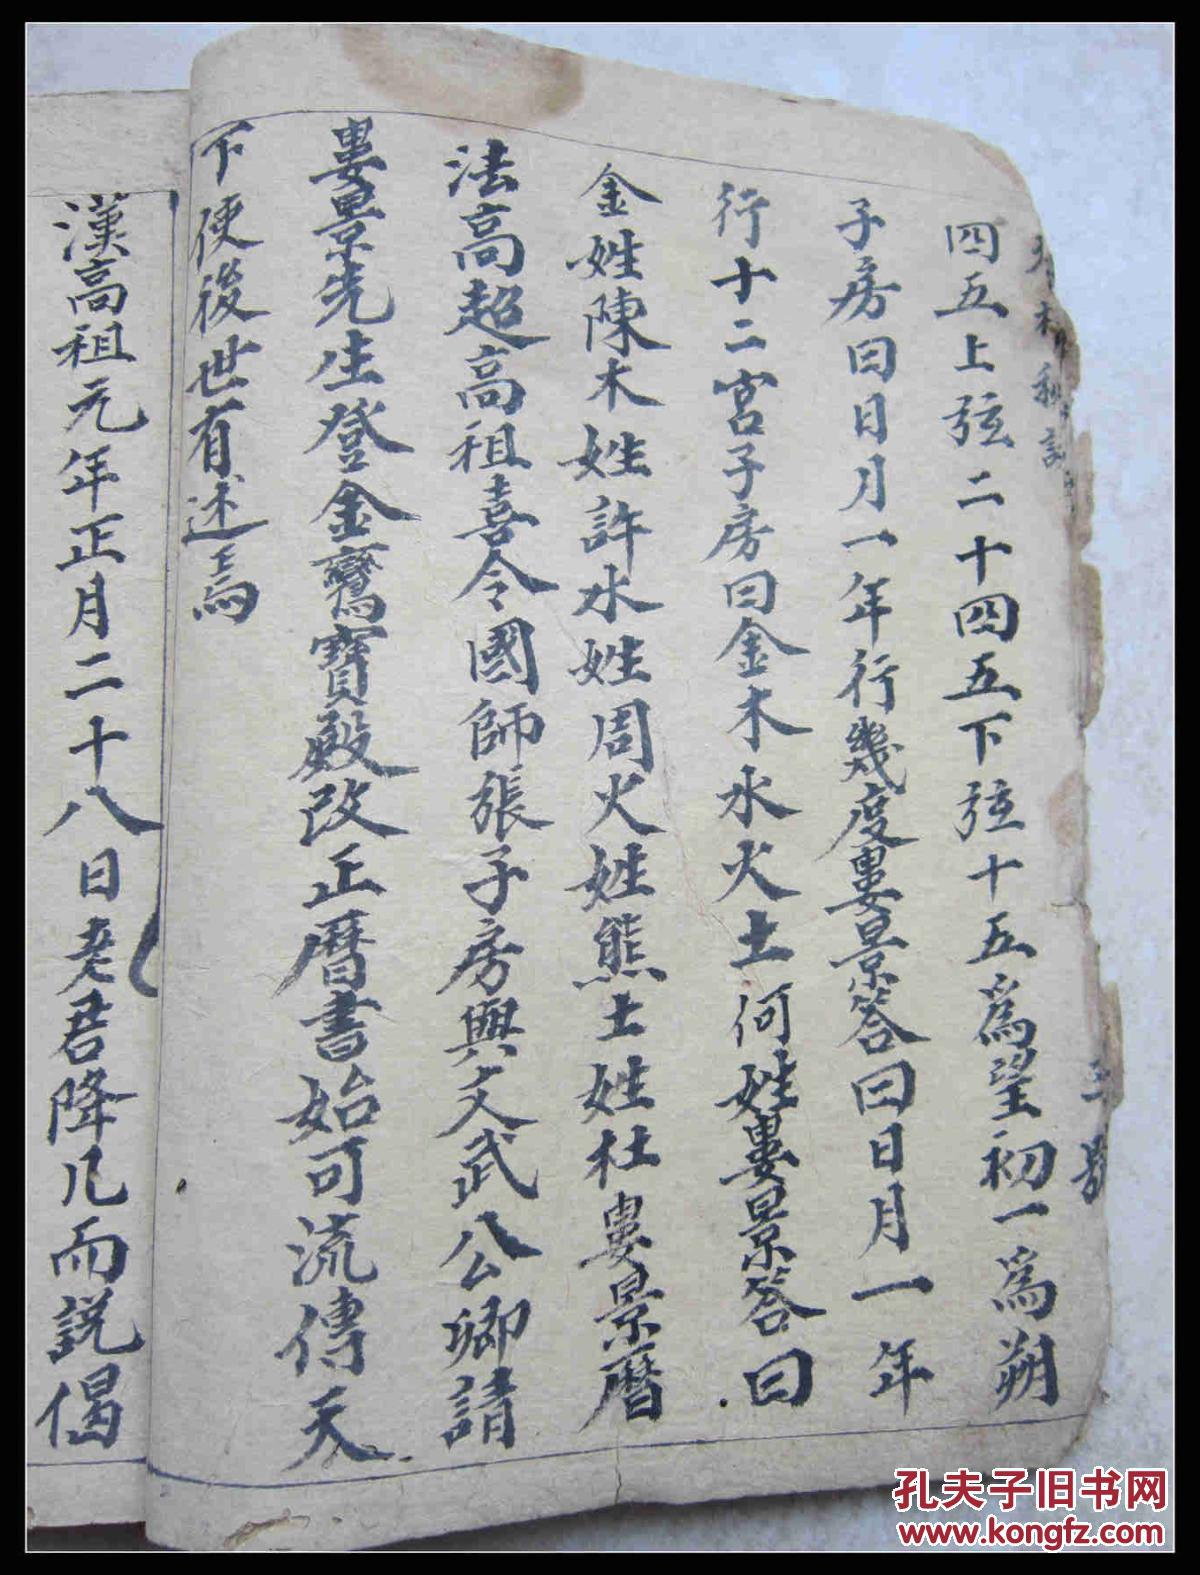 四五上弦二十四五下弦十五為望初一為朔
子房曰日月一年行幾度婁景答曰日月一年
行十二宮子房曰金木水火土何姓婁景答曰
金姓陳木姓許水姓周火姓熊土姓杜婁景曆
法高超高祖喜令國師張子房與文武公卿請
婁景先生登金鸞寶殿改正曆書始可流傳天
下使後世有述焉
漢高祖元年正月二十八日老君降凡而說偈
孔夫子旧书网
www.kongfz.com